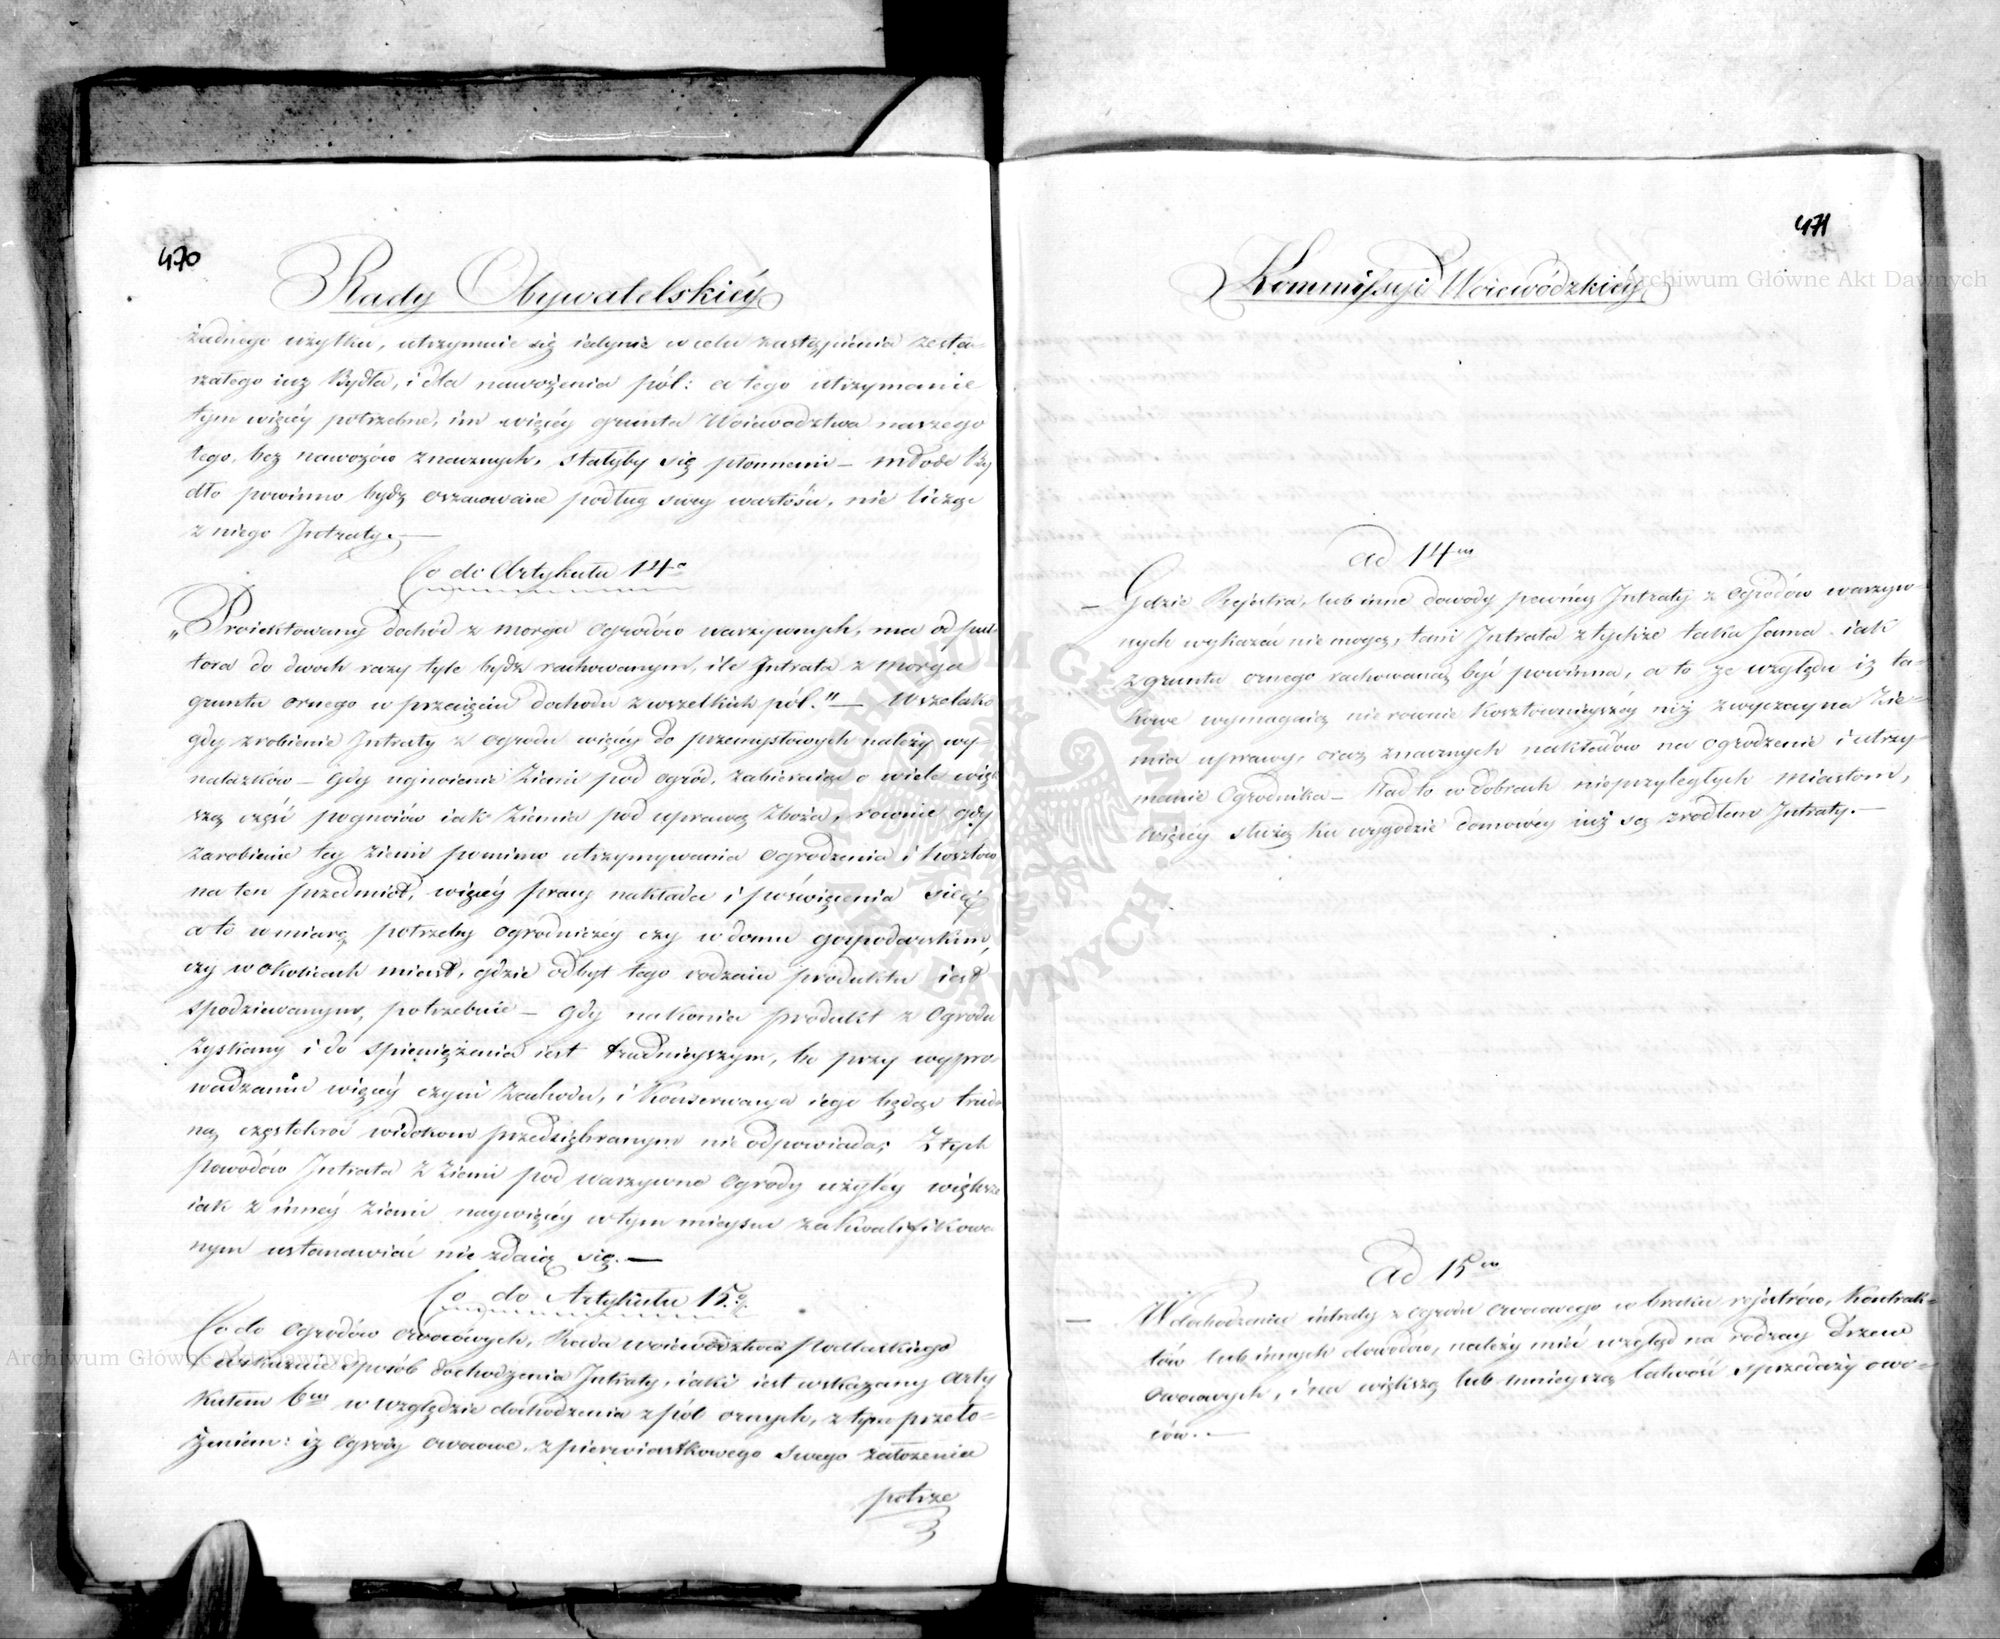 470
Rady Obywatelskiéy
żadnego użytku, utrzymuie się iedynie w celu zastąpienia zesta-
rzałego iuż Bydła, i dla nawożenia pól: a tego utrzymanie
tym więcéy potrzebne, im więcéy grunta Woiewodztwa naszego
tego, bez nawozów znacznych, stałyby się płonnemi – młode By
dło powinno bydź oszacowane podług swey wartości, nie licząc
z niego Intraty. —
Co do Artykułu 14º
„Proiektowany dochód z morga ogrodów warzywnych, ma od pół-
tora do dwoch razy tyle bydź rachowanym, ile Intrata z morga
gruntu ornego w przecięciu dochodu z wszelkich pól." — Wszelako
gdy zrobienie Intraty z ogrodu więcéy do przemysłowych należy wy-
nalazków – gdy ugnoienie Ziemi pod ogród, zabieraiąc o wiele więk
szą część pognoiów iak Ziemia pod uprawę Zboża, rownie gdy
zarobienie tey Ziemi pomimo utrzymywania ogrodzenia i kosztow
na ten przedmiot, więcéy pracy nakłada i poświęcenia się
a to w miarę potrzeby ogrodniczéy czy w domu gospodarskim,
czy w okolicach miast, gdzie odbyt tego rodzaiu produktu iest
spodziewanym, potrzebuie – gdy nakonic produkt z Ogrodu
zyskany i do spieniężenia iest trudnieyszym, bo przy wypro-
wadzaniu więcéy czyni Zachodu, i Konserwacya iego będąc trud
ną częstokroć widokom przedsiębranym nie odpowiada; Z tych
powodów Intrata z Ziemi pod warzywne ogrody użytey większa
iak z innéy Ziemi naywięcéy w tym mieyscu zakwalifikowa
nym ustanawiać nie zdaią się. —
Co do Artykułu 15º
Co do ogrodów owocowych, Rada Woiewództwa Podlaskiego
wskazuie sposób dochodzenia Intraty, iaki iest wskazany Arty
kułem 6m w względzie dochodzenia z pól ornych, z tym przeło-
żeniem: iż ogrody owocowe z pierwiastkowego swego założenia
potrze
471
Kommissyi Woiewódzkiéy
ad 14m
— Gdzie Rejestra, lub inne dowody pewnéy Intraty z ogrodów warzyw-
nych wykazać nie mogą, tam Intrata z tychże taka sama iak
z gruntu ornego rachowaną być powinna, a to ze względu iż ta-
kowe wymagaią nierownie kosztownieyszéy niż zwyczayna Zie-
mia uprawy, oraz znacznych nakładów na ogrodzenie i utrzy-
manie Ogrodnika – Nadto w dobrach nieprzyległych miastom,
więcéy służą ku wygodzie domowéy niż są źródłem Intraty. —
Ad 15m
— W dochodzeniu intraty z ogrodu owocowego w braku rejestrów, kontrak-
tów lub innych dowodów, należy mieć wzgląd na rodzay drzew
owocowych, i na większą lub mnieyszą łatwość sprzedaży owo-
ców. —
Archiwum Główne Akt Dawnych
Archiwum Główne Akt Dawnych
ARCHIWUM GŁÓWNE AKT DAWNYCH